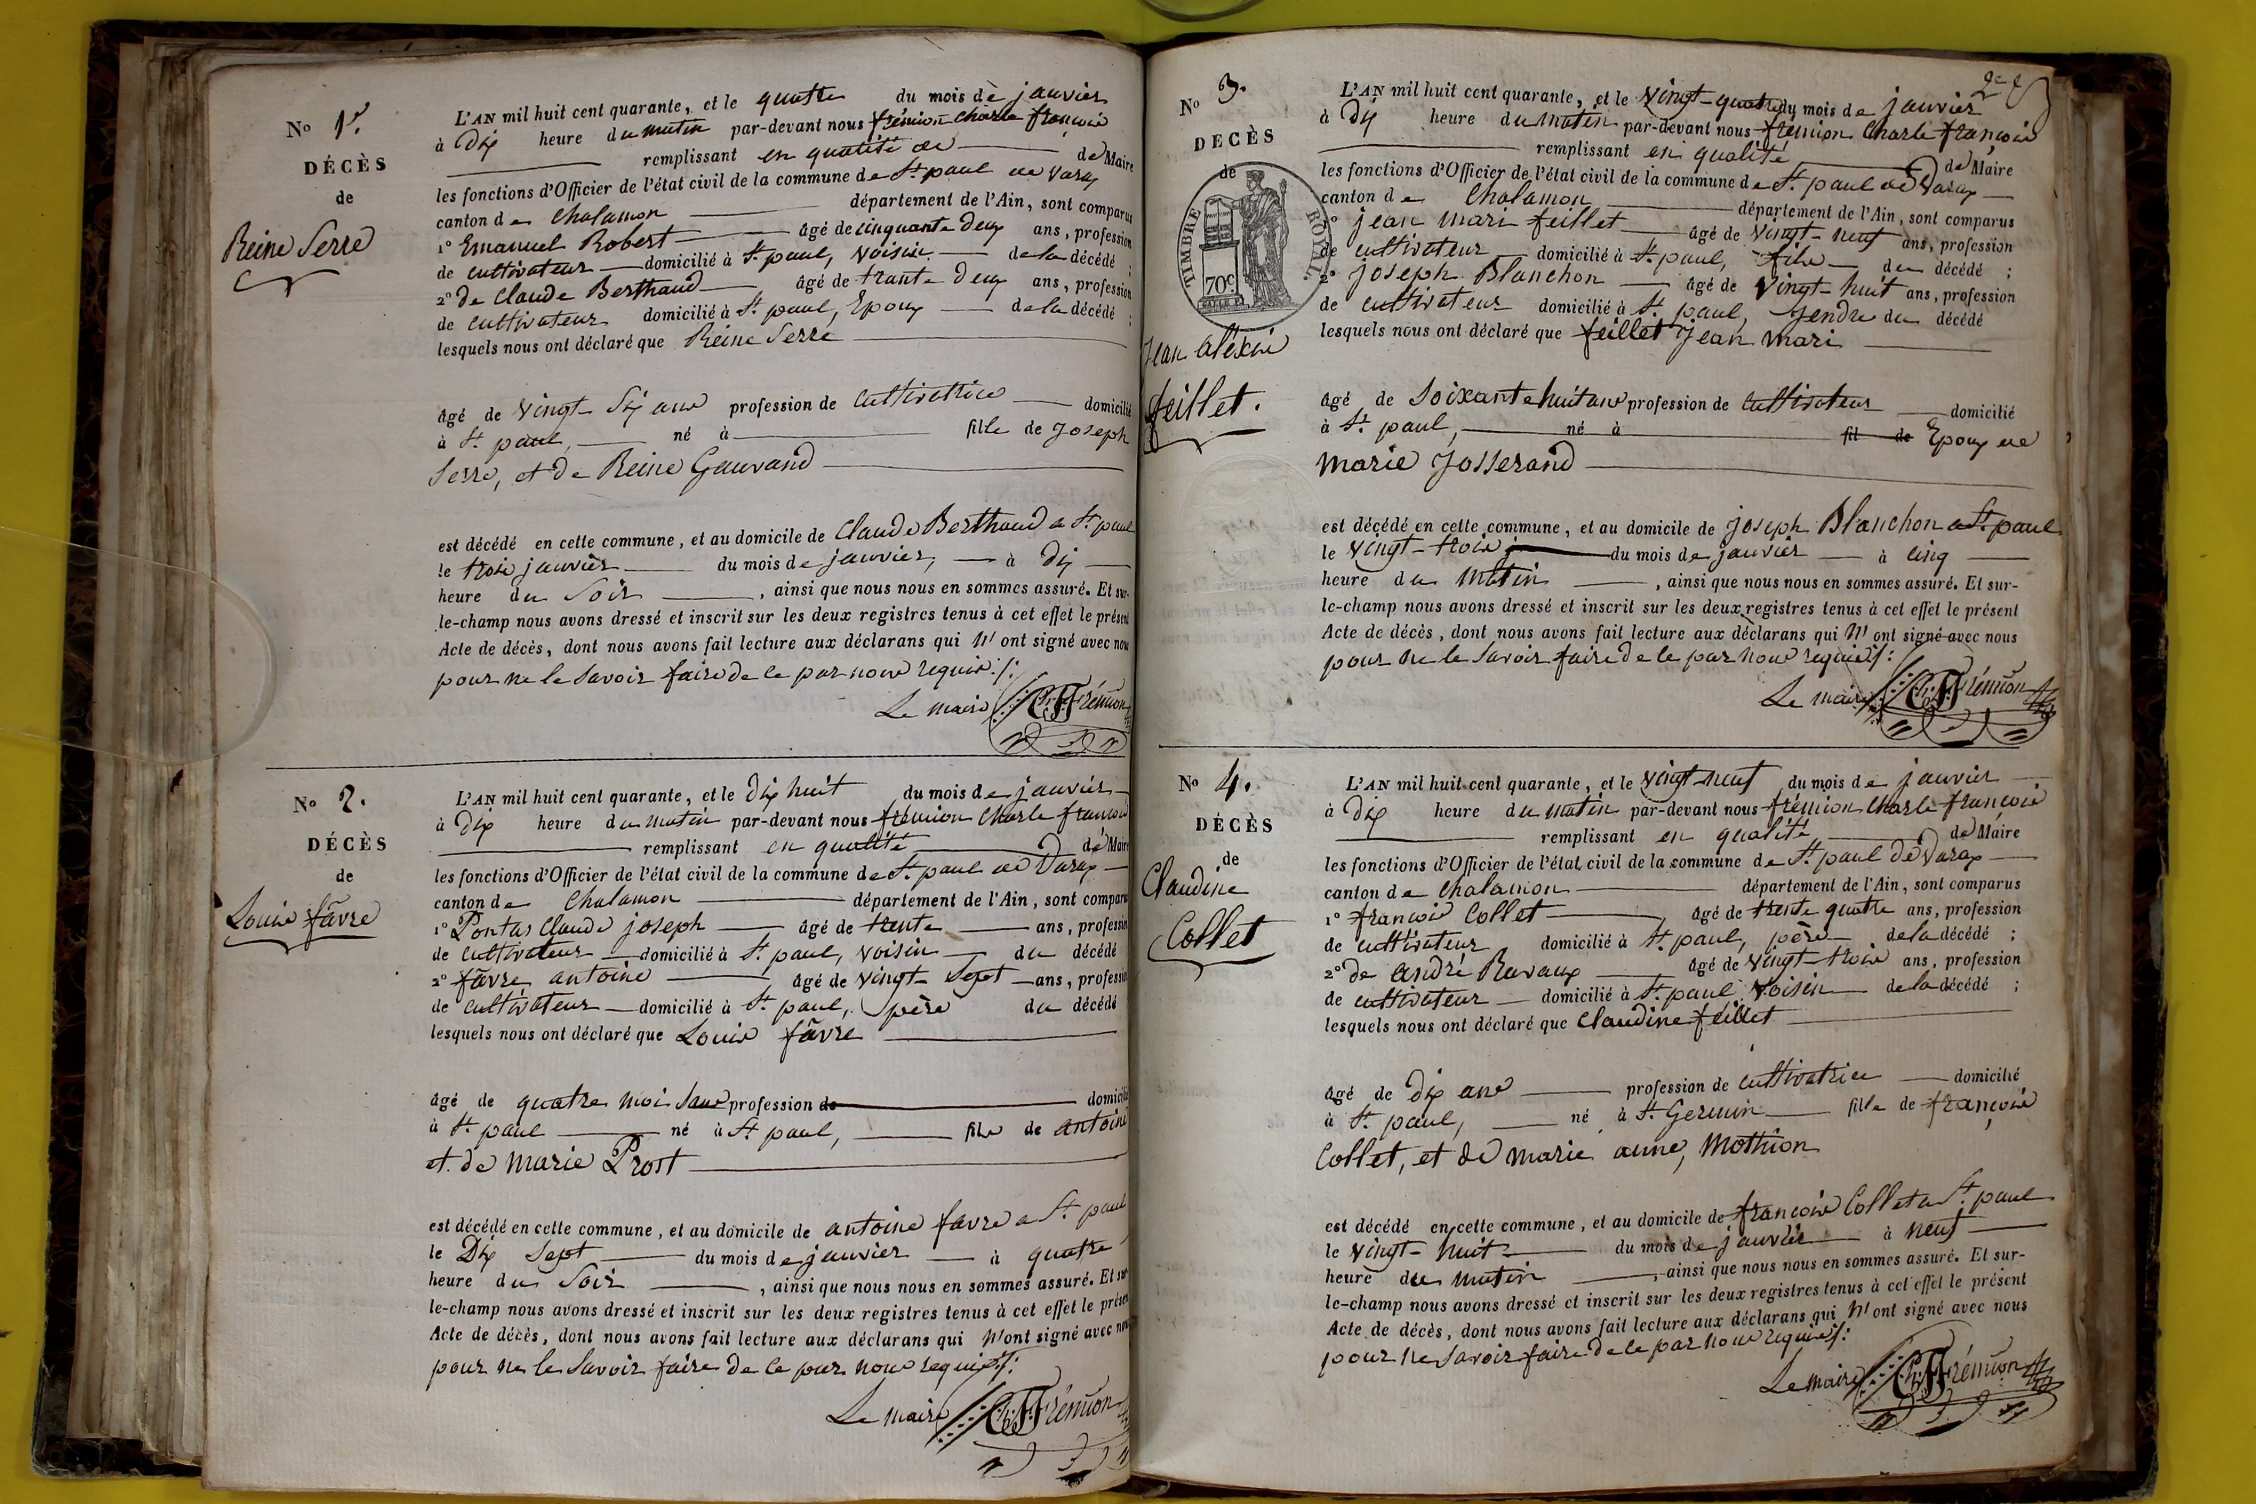 No 1r.
DÉCÈS
de
Reine Serre
L'AN mil huit cent quarante, et le quatre du mois de janvier
à Dix heure du matin par-devant nous frémion Charle françois
remplissant en qualité de de Maire
les fonctions d'Officier de l'état civil de la commune de St. paul de Varax
canton de Chalamon département de l'Ain, sont comparus
1° Emanuel Robert âgé de cinquante Deux ans, profession
de cultivateur domicilié à St. paul, Voisin de la décédé ;
2° de Claude Berthaud âgé de trante Deux ans, profession
de cultivateur domicilié à St. paul, Epoux de la décédé ;
lesquels nous ont déclaré que Reine Serre
âgé de vingt Six ans profession de cultivatrice domicilié
à St. paul, né à fille de Joseph
Serre, et de Reine Gauvand
est décédé en cette commune, et au domicile de Claude Berthaud a St. paul
le trois janvier du mois de janvier, à Dix
heure du Soir , ainsi que nous nous en sommes assuré. Et sur-
le-champ nous avons dressé et inscrit sur les deux registres tenus à cet effet le présent
Acte de décès, dont nous avons fait lecture aux déclarans qui N' ont signé avec nous
pour ne le Savoir faire de ce par nous requis ./:
Le maire Ch. F. Frémion
No 2.
DÉCÈS
de
Louis favre
L'AN mil huit cent quarante, et le Dix huit du mois de janvier
à Dix heure du matin par-devant nous frémion Charle françois
remplissant en qualité de Maire
les fonctions d'Officier de l'état civil de la commune de St. paul de Varax
canton de Chalamon département de l'Ain, sont comparus
1° Pontas Claude joseph âgé de trente ans, profession
de cultivateur domicilié à St. paul, Voisin du décédé
2° favre antoine âgé de vingt Sept ans, profession
de cultivateur domicilié à St. paul, père du décédé
lesquels nous ont déclaré que Louis favre
âgé de quatre moi Sans profession de domicilié
à St. paul né à St. paul, fils de antoine
et de Marie Prost
est décédé en cette commune, et au domicile de antoine favre a St. paul
le Dix Sept du mois de janvier à quatre
heure du Soir , ainsi que nous nous en sommes assuré. Et sur
le-champ nous avons dressé et inscrit sur les deux registres tenus à cet effet le présent
Acte de décès, dont nous avons fait lecture aux déclarans qui N'ont signé avec nous
pour ne le Savoir faire de ce par nous requis ./:
Le maire Ch. F. Frémion
No 3.
DÉCÈS
de
TIMBRE ROYAL
70c
Jean alexis
feillet.
L'AN mil huit cent quarante, et le Vingt-quatre du mois de janvier
à Dix heure du matin par-devant nous frémion Charle françois
remplissant en qualité de Maire
les fonctions d'Officier de l'état civil de la commune de St. paul de Varax
canton de Chalamon département de l'Ain, sont comparus
1° jean mari feillet âgé de Vingt-neuf ans, profession
de cultivateur domicilié à St. paul, fils du décédé ;
2° joseph Blanchon âgé de Vingt-huit ans, profession
de cultivateur domicilié à St. paul, gendre du décédé
lesquels nous ont déclaré que feillet Jean Mari
âgé de Soixante huit ans profession de cultivateur domicilié
à St. paul, né à fil de Epoux de
Marie Josserand
est décédé en cette commune, et au domicile de joseph Blanchon a St. paul
le Vingt-trois j du mois de janvier à cinq
heure du Matin , ainsi que nous nous en sommes assuré. Et sur-
le-champ nous avons dressé et inscrit sur les deux registres tenus à cet effet le présent
Acte de décès, dont nous avons fait lecture aux déclarans qui N' ont signé avec nous
pour ne le Savoir faire de ce par nous requis ./:
Le maire Ch. F. Frémion
No 4.
DÉCÈS
de
Claudine
Collet
L'AN mil huit cent quarante, et le vingt-neuf du mois de janvier
à Dix heure du matin par-devant nous frémion Charle françois
remplissant en qualité de Maire
les fonctions d'Officier de l'état civil de la commune de St. paul de Varax
canton de Chalamon département de l'Ain, sont comparus
1° françois Collet âgé de trente quatre ans, profession
de cultivateur domicilié à St. paul, père de la décédé ;
2° de andré Ravaux âgé de vingt-trois ans, profession
de cultivateur domicilié à St. paul, Voisin de la décédé ;
lesquels nous ont déclaré que Claudine feillet
âgé de Dix ans profession de cultivatrice domicilié
à St. paul, né à St. Germin fille de françois
Collet, et de marie anne, Mothion
est décédé en cette commune, et au domicile de françois Collet a St. paul
le Vingt-huit du mois de janvier à neuf
heure du matin , ainsi que nous nous en sommes assuré. Et sur-
le-champ nous avons dressé et inscrit sur les deux registres tenus à cet effet le présent
Acte de décès, dont nous avons fait lecture aux déclarans qui N'ont signé avec nous
pour ne Savoir faire de ce par nous requis ./:
Le maire Ch. F. Frémion